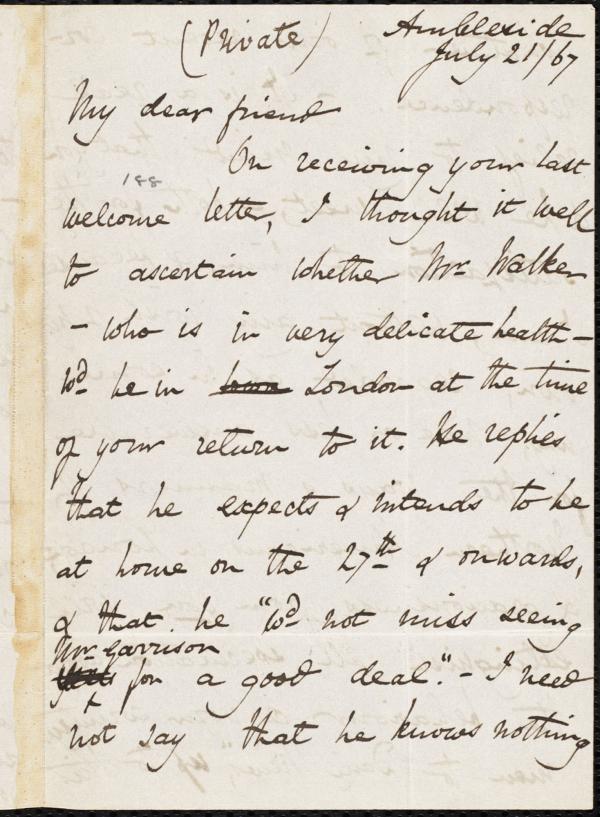 (Private)
Ambleside
July 21/67
My dear friend
On receiving your last
188
welcome letter, I thought it well
to ascertain whether Mr. Walker
– who is in very delicate health –
wd be in town London at the time
of your return to it. He replies
that he expects & intends to be
at home on the 27th & onwards,
& that he "wd not miss seeing
Mr. Garrison
for a good deal". – I need
not say that he knows nothing